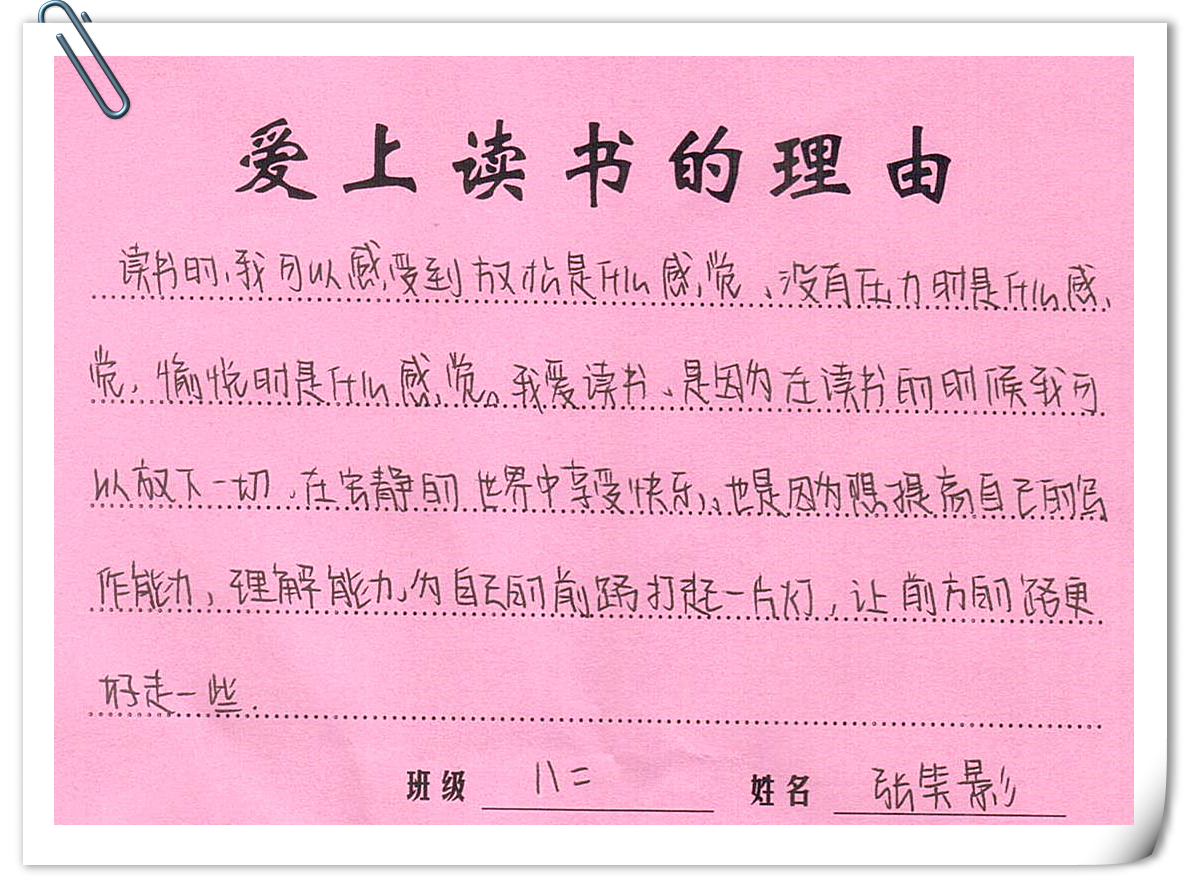 爱上读书的理由
读书时,我可以感受到放松是什么感觉、没有压力时是什么感
觉,愉悦时是什么感觉。我爱读书、是因为在读书的时候我可
以放下一切、在安静的世界中享受快乐、也是因为想提高自己的写
作能力,理解能力,为自己的前路打起一片灯,让前方的路更
好走一些.
班级 八二 姓名 张笑影